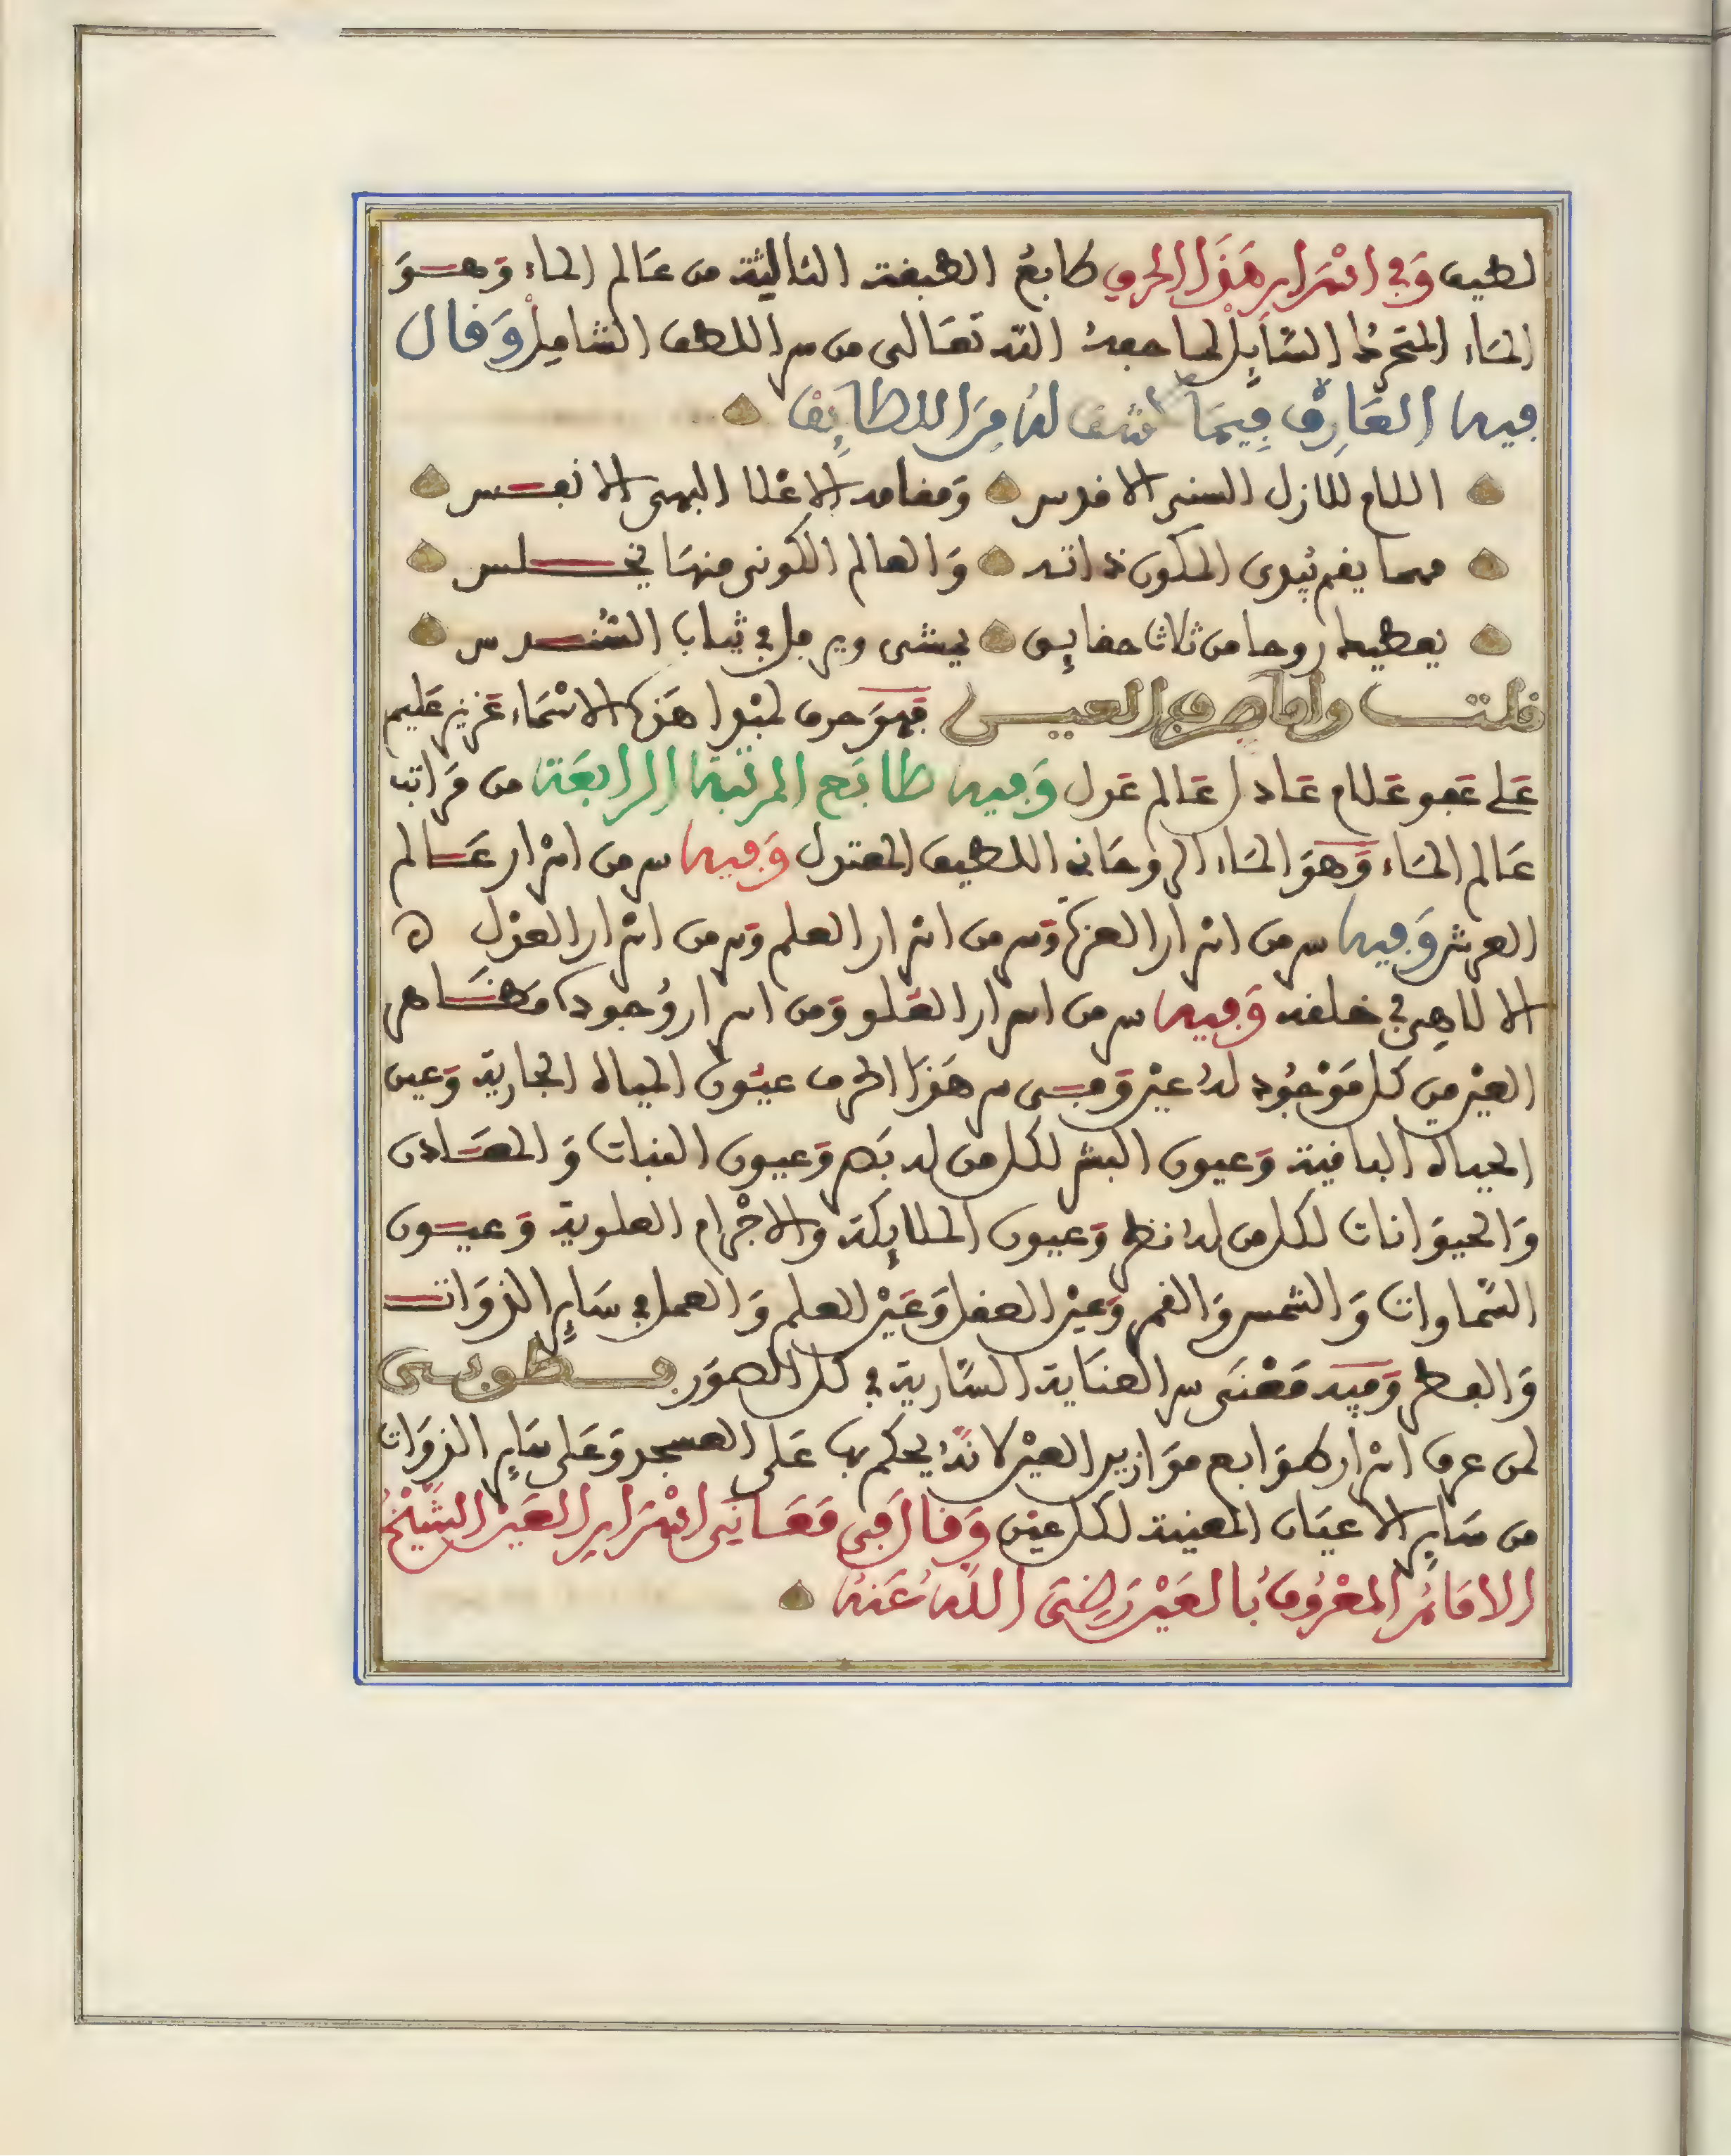 لطيف وَفِي اسْرَارِ هَذَا الحرفِ طابعُ الطبقة الثالثة من عَالم الماء وَهــوَ
المَاء المتحَرك السَّايِل لما جعلهُ الله تعَالى من سر اللطف الشامِل وَقال
فِيهِ العَارِفُ فِيمَا كُشف لهُ مِنَ اللطَايِف
اللام للازل السنى الاقدس وَمقامه الاعْلا البهى الانفــس
مهما يقم يُبدى المكون ذاته وَالعالم الكونى منهَا يجــلس
يعطيك روحا من ثلاث حقايق يمشى ويرفل في ثياب السُّنــدس
قلت وأما حرف العيــن فهوَ حرف لمبْدا هَذه الاسْمَاء عَزيز عَليم
عَلي عَفو عَلام عَادل عَالم عَدل وَفيهِ طابَع المرتبة الرابعَة من مَراتب
عَالم المَاء وَهوَ المَاء الروحَاني اللطيف المعتدل وَفيهِ سر من اسْرار عَــالم
العرش وَفيهِ سر من اسْرار العزة وَسر من اسْرار العلم وَسر من اسْرار العَدْل ه
الالاهِي في خلقه وَفيهِ سر من اسرار العَلو وَمن اسرار وُجوده مَظــاهر
العَيْن مِن كل مَوْجُود لهُ عيْن وَمــن سر هَذا الحرف عيُون المياه الجارية وَعين
الحياة الباقية وَعيون البشر لكل من له بَصر وَعيون النبات وَالمعَــادن
وَالحيوَانات لكل من لهُ نظر وَعيون الملايِكة وَالاجْرام العلوية وَعيــون
السَّماوات وَالشمس وَالقمر وَعيْن العقل وَعَيْن العلم وَالعمل في سَايِر الذوَات
وَالفطر وَفيه مَعْنَى سر العنَاية السَّارية في كل الصوَر فــطوبــى
لمن عرف اسْرار طوَابع موَازين العيْن لانهُ يحكم بها عَلى العسجد وَعَلى سَايِر الذوَات
من سَايِر الاعيَان المعينة لكل عيْن وَقال في مَعَــانِي اسْرَارِ العَيْن الشَّيْخُ
الامَامُ المعْرُوفُ بالعَيْن رَضِيَ اللهُ عَنهُ